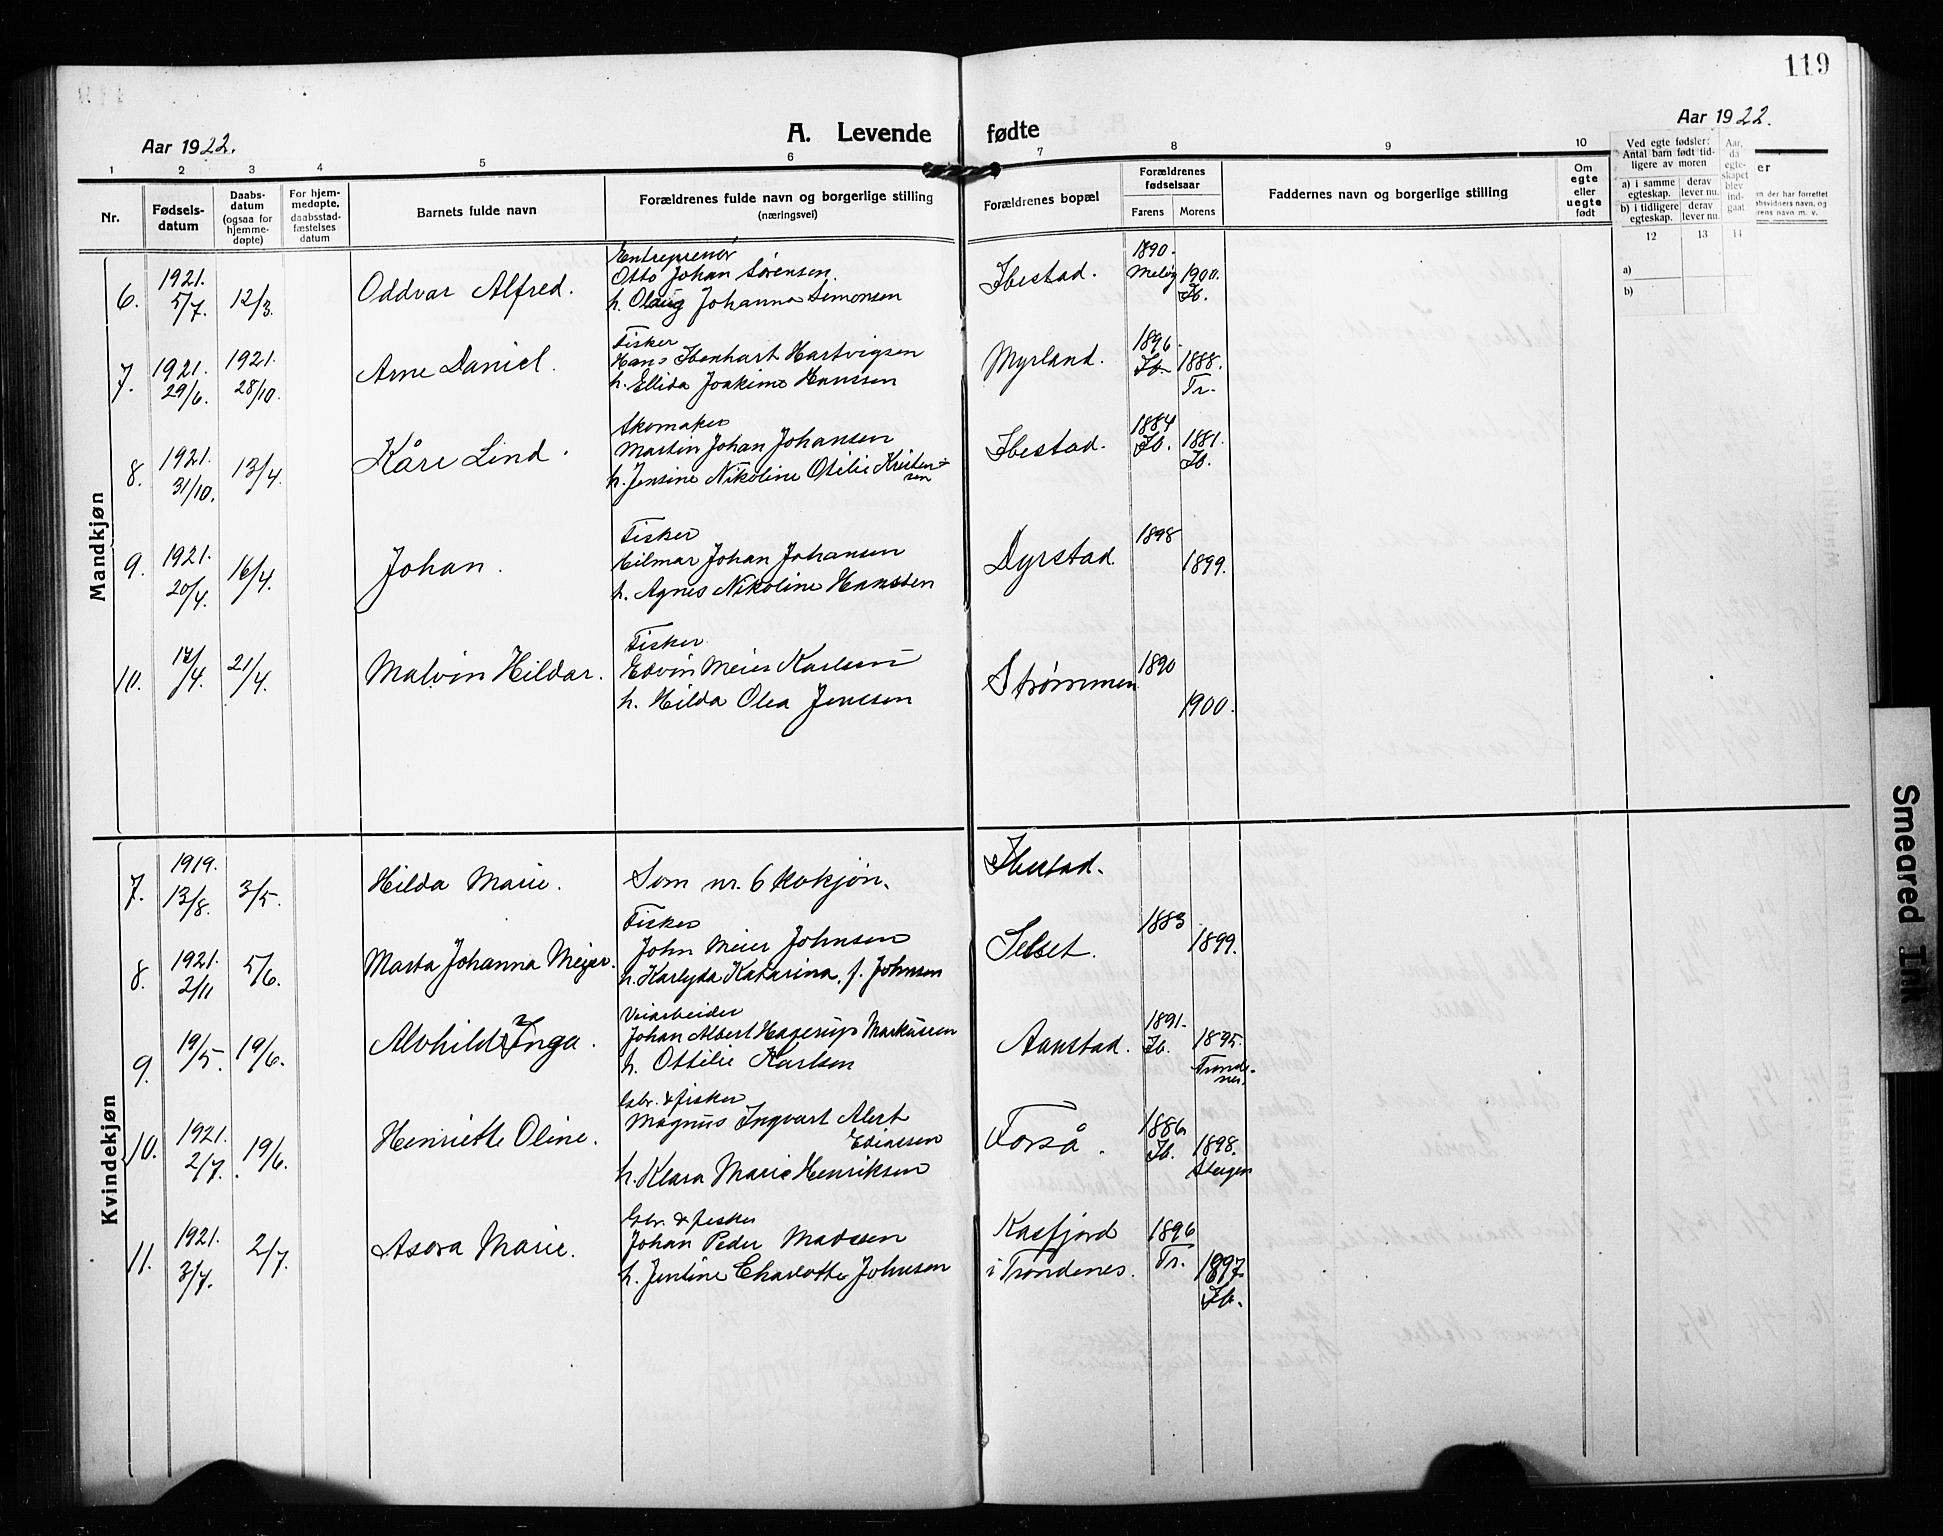 119
Aar 1922.
A. Levende fødte
Aar 1922.
1 2 3 4 5 6 7 8 9 10
Nr.
Fødsels-
datum
Daabs-
datum
(ogsaa for
hjemme-
døpte)
For hjem-
medøpte,
daabsstad-
fæstelses
datum
Barnets fulde navn
Forældrenes fulde navn og borgerlige stilling
(næringsvei)
Forældrenes bopæl
Forældrenes
fødselsaar
Farens Morens
Faddernes navn og borgerlige stilling
Om
egte
eller
uegte
født
Ved egte fødsler:
Antal barn født tid-
ligere av moren
a) i samme
egteskap.
derav
lever nu.
b) i tidligere
egteskap.
derav
lever nu.
Aar,
da
egte-
skapet
blev
ind-
gaat
12 13 14
a)
b)
Mandkjøn
6. 1921. 5/7. 12/3. Oddvar Alfred.
Entreprenør
Otto Johan Sørensen.
h. Johanna Simonsen
Ibestad. 1890. 1900. Ib.
7. 1921. 29/6. 1921. 28/10. Arne Daniel.
Fisker
Hans Ibenhart Hartvigsen
h. Ellida Joakime Hanssen
Myrland. 1896. Ib. 1888. Tr.
8. 1921. 31/10. 13/4. Kåre Lind.
Skomaker
Martin Johan Johansen
h. Jensine Nikoline Otilie Kristen-
sen
Ibestad. 1884 Ib. 1881. Ib.
9. 1921. 20/4. 16/4. Johan.
Fisker
Hilmar Johan Johansen
h. Agnes Nikoline Hanssen
Dyrstad. 1898 1899.
10. 14/4. 21/4. Malvin Hildar.
Fisker
Edvin Meier Karlsen
h. Hilda Olea Jenssen
Strømmen 1890 1900.
Kvindekjøn
7. 1919. 13/8. 3/5. Hilda Marie.
Som nr. 6
Ibestad.
8. 1921. 2/11 5/6. Marta Johanna Meier.
Fisker
John Meier Johnsen
h. Karlyda Katarina, f. Johnsen
Selset. 1883 1899.
9. 19/5. 19/6. Alvhild Inga.
Veiarbeider
Johan Albert Hagerup Markussen
h. Ottilie Karlsen
Aanstad. 1891. Ib. 1895. Tronde-
nes.
10. 1921. 2/7. 19/6. Henriette Oline.
Gbr. & fisker
Magnus Ingvart Alert
Ediassen
h. Klara Marie Henriksen
Forså. 1886 Ib. 1898. Steigen
11. 1921. 3/7. 2/7. Asora Marie.
Gbr. & fisker
Johan Peder Madssen
h. Jentine Charlotte Johnsen
Kasfjord
i Trondenes. 1896 Tr. 1897. Ib.
Smeared Ink